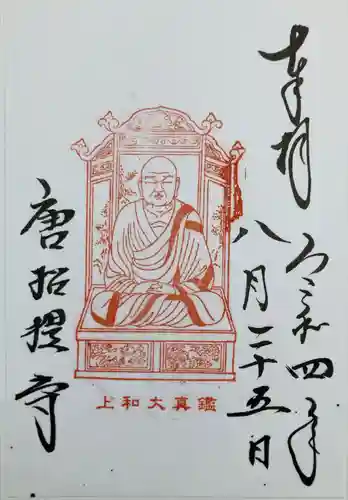 奉拝
令和四年
八月二十五日
上和大真鑑
唐招提寺